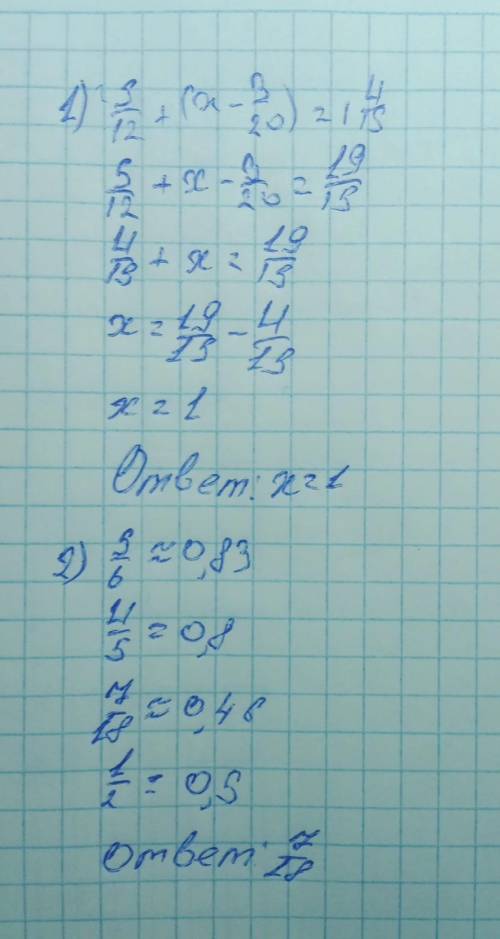 1) 5/12 + (x - 3/20) = 1 4/15
5/12 + x - 3/20 = 19/15
4/15 + x = 19/15
x = 19/15 - 4/15
x = 1
Ответ: x=1
2) 5/6 ≈ 0,83
4/5 = 0,8
7/18 ≈ 0,46
1/2 = 0,5
Ответ: 7/18